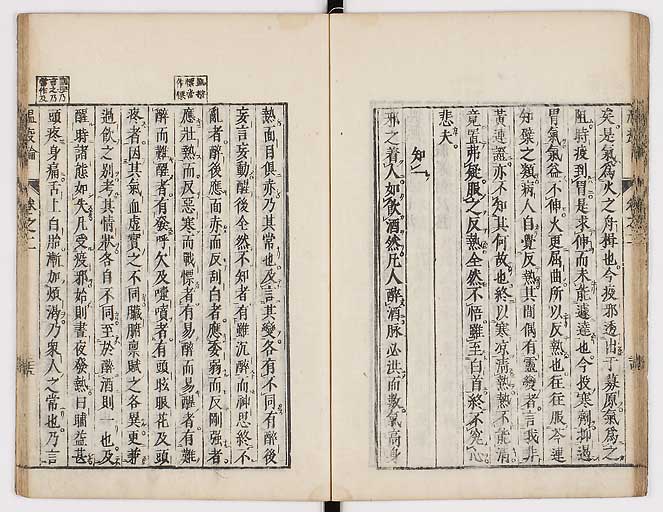 矣是氣為火之舟楫也今投邪透出于募原氣為之
阻時疫到胃是求伸而未能遽達也今投寒劑抑遏
胃氣氣益不伸火更屈曲所以反熱也往往服芩連
知檗之類病人自覺反熱其間偶有靈變者言我非
黃連證亦不知其何故也終以寒凉清熱熱不能清
竟置弗疑服之反熱全然不悟雖至白首終不究心
悲夫
知一
邪之着人如飲酒然凡人醉酒脉必洪而數氣高身
熱面目俱赤乃其常也及言其變各有不同有醉後
妄言妄動醒後全然不知者有雖沉醉而神思終不
亂者醉後應面赤而反刮白者應委弱而反剛强者
應壯熱而反惡寒而戰慄者有易醉而易醒者有難
醉而難醒者有發呼欠及嚏噴者有頭眩眼花及頭
疼者因其氣血虛實之不同臟腑稟賦之各異更兼
過飲之別考其情狀各自不同至於醉酒則一也及
醒時諸態如失凡受疫邪始則晝夜發熱日晡益甚
頭疼身痛舌上白胎漸加煩渴乃衆人之常也乃言
卷之二